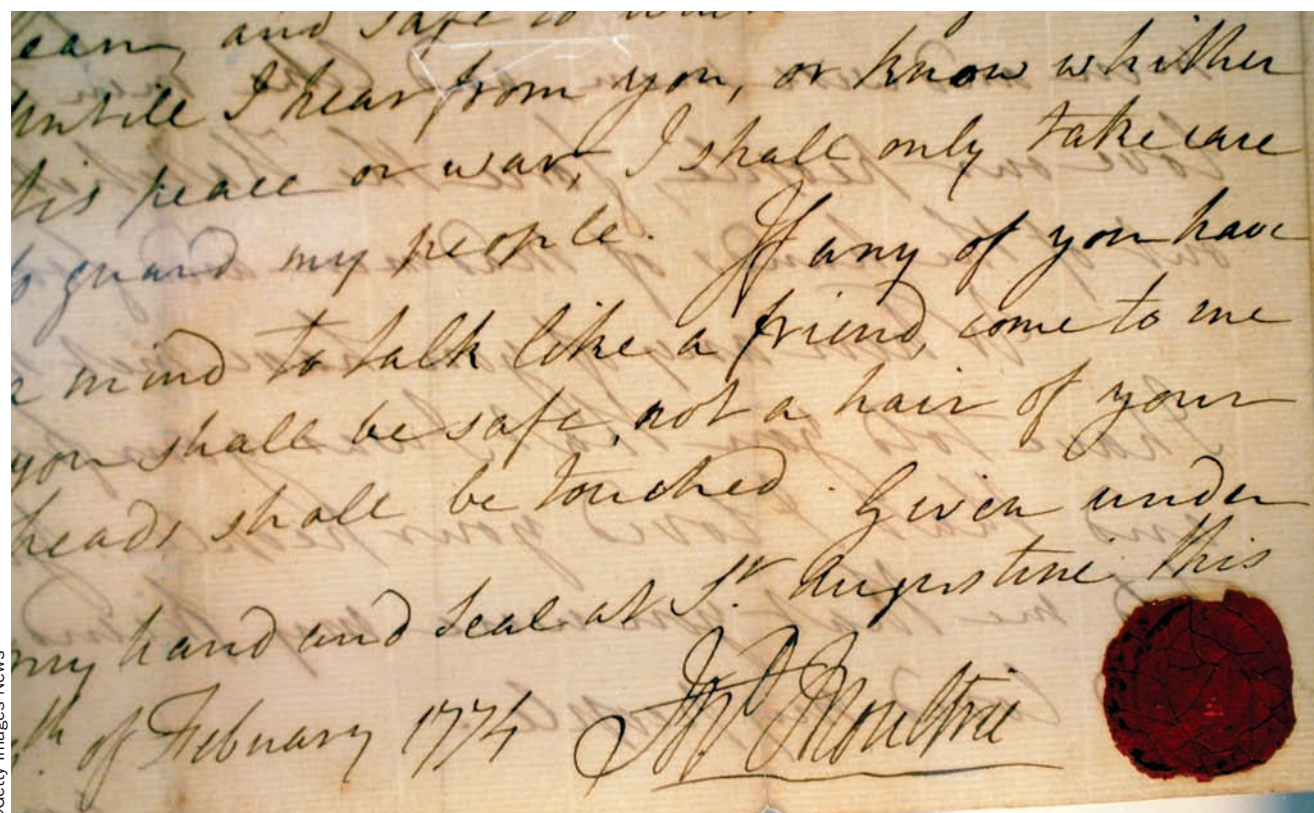 and safe to
untill I hear from you, or know whither
tis peace or war, I shall only take care
to guard my people. If any of you have
a mind to talk like a friend, come to me
you shall be safe, not a hair of your
heads shall be touched. Given under
my hand and seal at St. Augustine this
th of February 1774 Jno Moultrie
Getty Images News